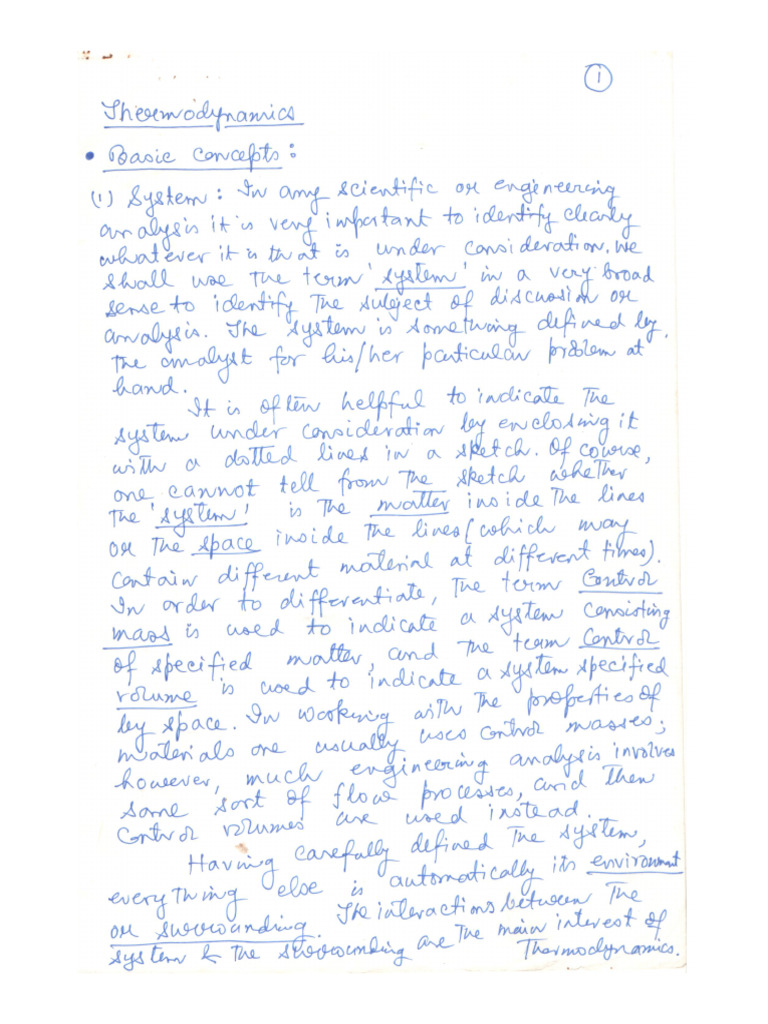 1
Thermodynamics
• Basic Concepts:
(1) System: In any scientific or engineering
analysis it is very important to identify clearly
whatever it is that is under consideration. We
shall use the term 'system' in a very broad
sense to identify the subject of discussion or
analysis. The system is something defined by
the analyst for his/her particular problem at
hand.
It is often helpful to indicate the
system under consideration by enclosing it
with a dotted lines in a sketch. Of course,
one cannot tell from the sketch whether
the 'system' is the matter inside the lines
or the space inside the lines (which may
contain different material at different times).
In order to differentiate, the term Control
mass is used to indicate a system consisting
of specified matter, and the term Control
volume is used to indicate a system specified
by space. In working with the properties of
materials one usually uses control masses;
however, much engineering analysis involves
some sort of flow processes, and then
control volumes are used instead.
Having carefully defined the system,
everything else is automatically its environment
or surrounding. The interactions between the
system & the surrounding are the main interest of
Thermodynamics.